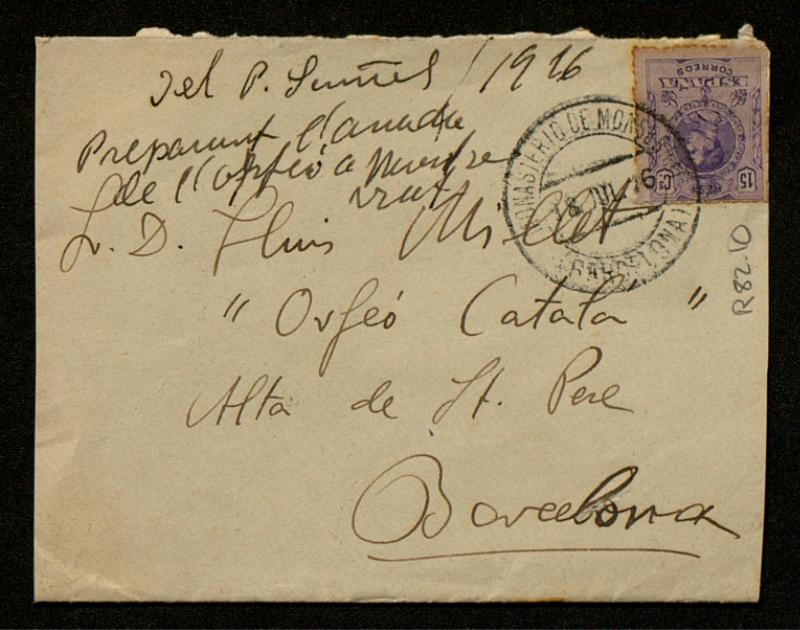 Del P. Suñol / 1916
Preparant l'anada
de l'Orfeó a Montse
rrat
Sr. D. Lluis Millet
"Orfeó Catala"
Alta de St. Pere
Barcelona
MONASTERIO DE MONSERRAT
18 JUL 16
(BARCELONA)
CORREOS
ESPAÑA
15 Cs
R82.10